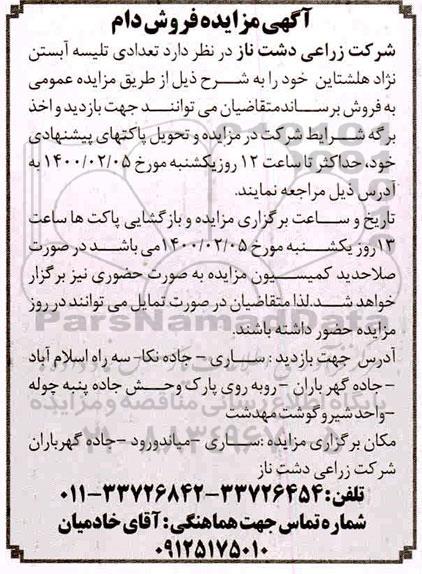 آگهی مزایده فروش دام
شرکت زراعی دشت ناز در نظر دارد تعدادی تلیسه آبستن
نژاد هلشتاین خود را به شرح ذیل از طریق مزایده عمومی
به فروش برساند متقاضیان می توانند جهت بازدید و اخذ
برگه شرایط شرکت در مزایده و تحویل پاکتهای پیشنهادی
خود، حداکثر تا ساعت ۱۲ روز یکشنبه مورخ ۱۴۰۰/۰۲/۰۵ به
آدرس ذیل مراجعه نمایند.
تاریخ و ساعت برگزاری مزایده و بازگشایی پاکت ها ساعت
۱۳ روز یکشنبه مورخ ۱۴۰۰/۰۲/۰۵ می باشد در صورت
صلاحدید کمیسیون مزایده به صورت حضوری نیز برگزار
خواهد شد. لذا متقاضیان در صورت تمایل می توانند در روز
مزایده حضور داشته باشند.
ParsNamadData
آدرس جهت بازدید : ساری – جاده نکا- سه راه اسلام آباد
– جاده گهر باران – روبه روی پارک وحش جاده پنبه چوله
–واحد شیر و گوشت مهدشت
پایگاه اطلاع رسانی مناقصه و مزایده
مکان برگزاری مزایده : ساری – میاندورود – جاده گهرباران
۰۲۱-۸۸۳۴۹۶۷۰
شرکت زراعی دشت ناز
تلفن: ۳۳۷۲۶۴۵۴-۳۳۷۲۶۸۴۲-۰۱۱
شماره تماس جهت هماهنگی: آقای خادمیان
۰۹۱۲۵۱۷۵۰۱۰